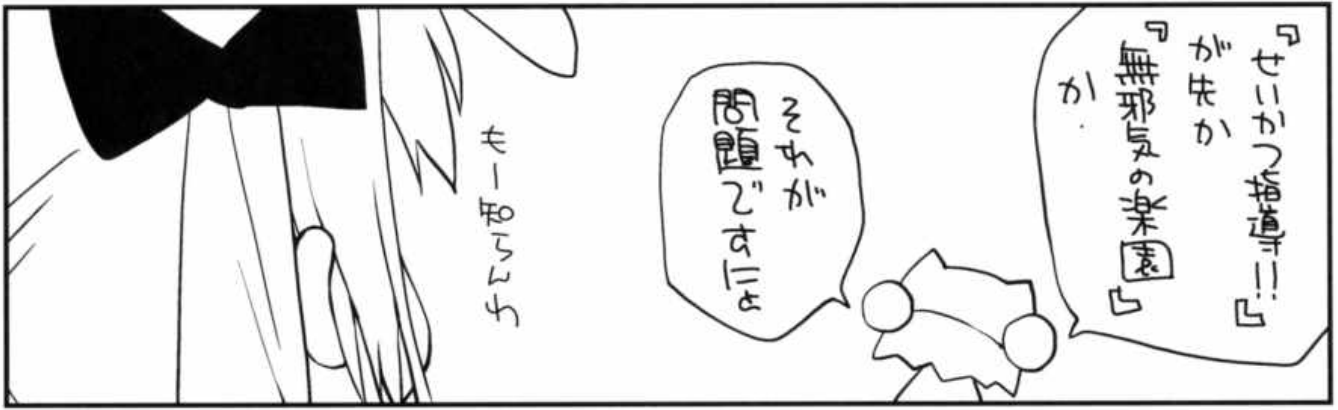 『せいかつ指導!!』
が先か
『無邪気の楽園』
か.
それが
問題ですにょ
もー知らんわ